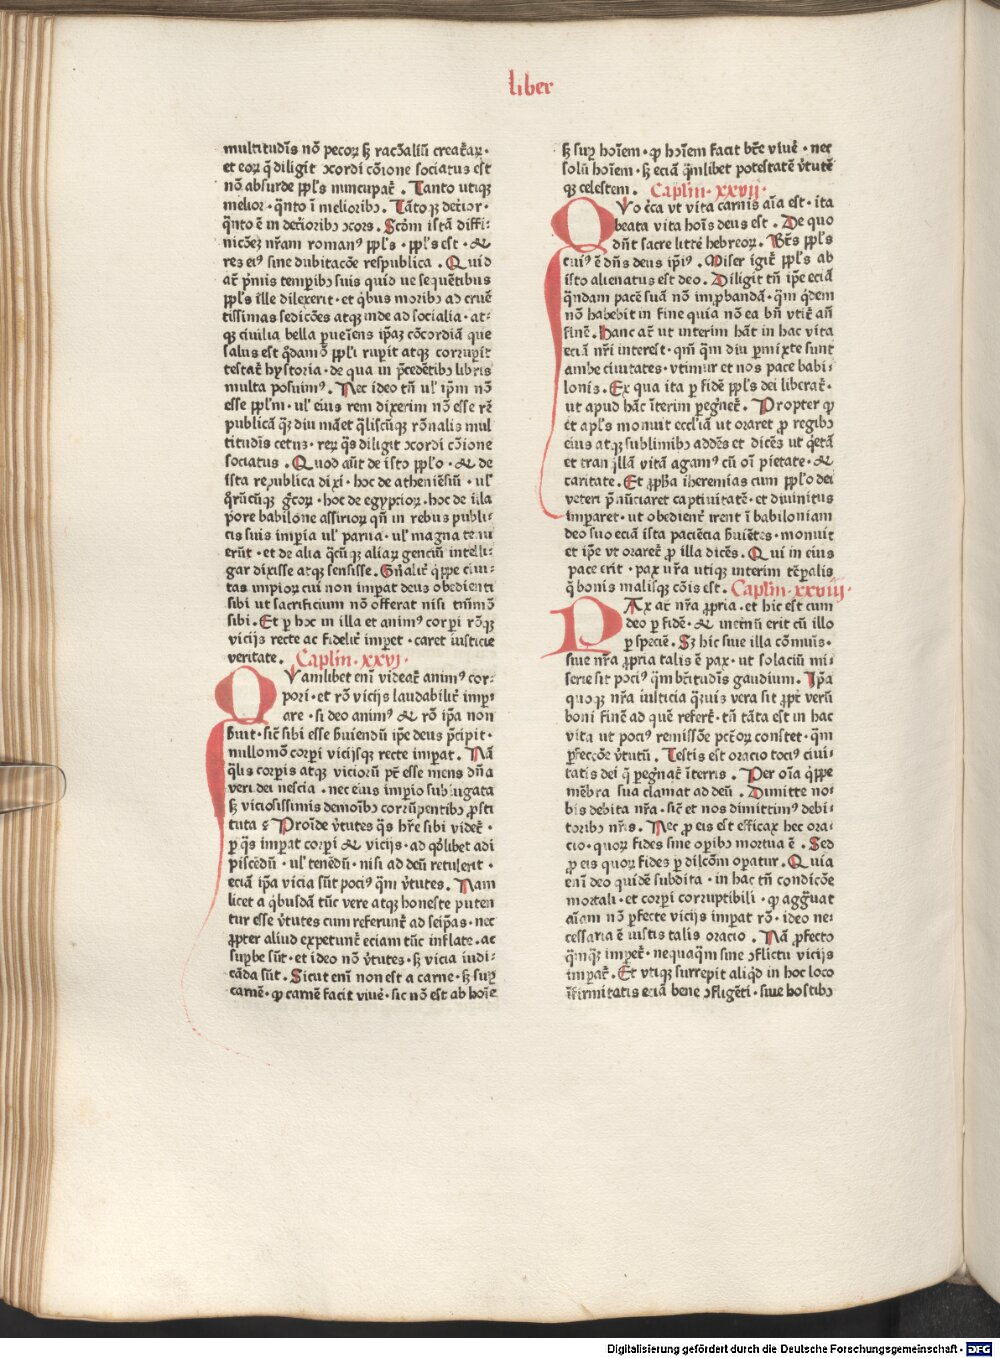 liber
multitudīs nō pecoꝝ sꝫ racōaliū creat᷑aꝝ·
et eoꝝ q̄ diligit ↄcordi cōīone sociatus est
nō absurde ppl's nuncupat᷑ . Tanto utiqꝫ
melior · q̄nto ī melioribꝫ . Tāto qꝫ det᷑ior·
q̄nto ē in det᷑ioribꝫ ↄcors . Scdm istā diffi-
nicōeꝫ nr̄am romanꝰ ppl's · ppl's est · &
res eiꝰ sine dubitacōe respublica . Quid
at᷑ p̄mis tempibꝫ suis quid ue sequētibus
ppl's ille dilexerit · et q̄bus moribꝫ ad cruē
tissimas sedicōes atqꝫ inde ad socialia · at-
qꝫ ciuilia bella ꝑueīens ip̄aꝫ cōcordiā que
salus est q̄damō ppl'i rupit atqꝫ corrupit
testat᷑ hystoria · de qua in p̄cedētibꝫ libris
multa posuimꝰ . Nec ideo tn̄ ul' ip̄m nō
esse ppl'm · ul' eius rem dixerim nō esse rē
publicā qꝫ diu māet q̄liscūqꝫ rōnalis mul
titudīs cetꝰ · reꝝ q̄s diligit ↄcordi cōīone
sociatus . Quod aūt de isto ppl'o · & de
ista republica dixi · hoc de atheniēsiū · ul'
q̄rūcūqꝫ g̃coꝝ · hoc de egypcioꝝ · hoc de illa
p̄ore babilone assirioꝝ qn̄ in rebus publi-
cis suis imꝑia ul' parua · ul' magna tenu
erūt · et de alia q̄cūqꝫ aliaꝝ genciū intelli-
gar dixisse atqꝫ sensisse . Gn̄alit᷑ q̄ppe ciui-
tas impioꝝ cui non imꝑat deus obedienti
sibi ut sacrificium nō offerat nisi tm̄mō
sibi . Et ꝑ hoc in illa et animꝰ corꝑi rōqꝫ
vicijs recte ac fidelit᷑ imꝑet · caret iusticie
veritate . Caplm · xxvj ·
Quamlibet eni videat᷑ animꝰ cor-
pori · et rō vicijs laudabilit᷑ imꝑ-
are · si deo animꝰ & rō ip̄a non
ẜuit · sic̄ sibi esse ẜuiendū ip̄e deus p̄cipit·
nullomō corꝑi vicijsqꝫ recte imꝑat . Nā
q̄lis corꝑis atqꝫ vicioꝝ pt̄ esse mens dn̄a
veri dei nescia · nec eius imꝑio subiugata
sꝫ viciosissimis demoībꝫ corrūpentibꝫ ꝓsti
tuta ? Proīde v̄tutes q̄s hr̄e sibi videt᷑ ·
ꝑ q̄s imꝑat corꝑi & vicijs · ad qd'libet adi
piscēdū · ul' tenēdū · nisi ad deū retulerit ·
eciā ip̄a vicia sūt pociꝰ q̄m v̄tutes . Nam
licet a q̄busdā tūc vere atqꝫ honeste puten
tur esse v̄tutes cum referunt᷑ ad seip̄as · nec
ꝓpter aliud expetunt᷑ eciam tūc inflate · ac
suꝑbe sūt · et ideo nō v̄tutes · sꝫ vicia iudi-
cāda sūt . Sicut eni non est a carne · sꝫ suꝑ
carnē · qd carnē facit viue᷑ · sic nō est ab hoīe
sꝫ suꝑ hoīem · qd hoīem facit bt̄e viue᷑ · nec
solū hoīem · sꝫ eciā q̄mlibet potestatē v̄tutē
qꝫ celestem . Caplm · xxvij ·
Quo ct̄ca vt vita carnis aīa est · ita
beata vita hoīs deus est . De quo
dn̄t sacre litt᷑e hebreoꝝ . Bt̄s ppl's
cuiꝰ ē dn̄s deus ip̄iꝰ . Miser igit᷑ ppl's ab
isto alienatus est deo . Diligit tn̄ ip̄e eciā
q̄ndam pacē suā nō imꝓbandā · q̄m q̄dem
nō habebit in fine quia nō ea bn̄ vtit᷑ an̄
finē . Hanc at᷑ ut interim hāt in hac vita
eciā nr̄i interest · qm̄ q̄m diu ꝑmixte sunt
ambe ciuitates · vtimur et nos pace babi-
lonis . Ex qua ita ꝑ fidē ppl's dei liberat᷑·
ut apud hāc īterim ꝑeg᷑net᷑ . Propter qd
et apl's monuit eccl'iā ut oraret ꝓ regibꝫ
eius atqꝫ sublimibꝫ addēs et dicēs ut q̄etā
et tranq̄llā vitā agamꝰ cū oī pietate · &
caritate . Et ꝓph̄a iheremias cum ppl'o dei
veteri p̄nūciaret captiuitatē · et diuinitus
imperaret · ut obedient᷑ irent ī babiloniam
deo suo eciā ista paciēcia ẜuiētes · monuit
et ip̄e vt oraret᷑ ꝓ illa dicēs . Qui in eius
pace erit · pax ur̄a utiqꝫ interim tēꝑalis
q̄ bonis malisqꝫ cōis est . Caplm · xxviij ·
PAx at᷑ nr̄a ꝓpria · et hic est cum
deo ꝑ fidē · & inet᷑nū erit cū illo
ꝑ speciē . Sꝫ hic siue illa cōmuis·
siue nr̄a ꝓpria talis ē pax · ut solaciū mi-
serie sit pociꝰ q̄m bt̄itudīs gaudium . Ip̄a
quoqꝫ nr̄a iusticia q̄ꝫuis vera sit ꝓpt᷑ verū
boni finē ad quē refert᷑ · tn̄ tāta est in hac
vita ut pociꝰ remissiōe pct̄oꝝ constet · q̄m
ꝑfeccōe v̄tutū . Testis est oracio tociꝰ ciui-
tatis dei q̄ ꝑeg᷑nat᷑ īterris . Per oīa q̄ppe
mēbra sua clamat ad deū . Dimitte no-
bis debita nr̄a · sic̄ et nos dimittimꝰ debi-
toribꝫ nr̄is . Nec ꝓ eis est efficax hec ora-
cio · quoꝝ fides sine oꝑibꝫ mortua ē . Sed
ꝓ eis quoꝝ fides ꝑ dilc̄om oꝑatur . Quia
eni deo quidē subdita · in hac tn̄ condicōe
mortali · et corꝑi corruptibili · qd agg᷑uat
aīam nō ꝑfecte vicijs imꝑat rō · ideo ne-
cessaria ē iustis talis oracio . Nā ꝓfecto
q̄mqꝫ imꝑet᷑ · nequaq̄m sine ↄflictu vicijs
imꝑat᷑ . Et vtiqꝫ surrepit aliq̄d in hoc loco
īfirmitatis eciā bene ↄfligēti · siue hostibꝫ
Digitalisierung gefördert durch die Deutsche Forschungsgemeinschaft - DFG